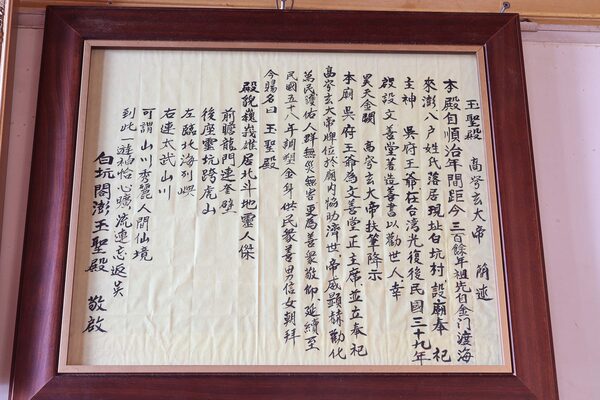 玉聖殿 高學玄大帝 簡述
本殿自順治年間距今三百餘年祖先自金门渡海
來澎八户姓氏落居現址白坑村設廟奉祀
主神 吳府王爺在台湾光復後民國三十九年
啟設文善堂著造善書以勸世人幸
昊天金闕 高學玄大帝扶筆降示
本廟吳府王爺為文善堂正主席並立奉祀
高學玄大帝牌位於廟內協助濟世、帝威顯赫勸化
萬民護佑人群無災無害更為善衆敬仰、延續至
民國五十八年雕塑金身供民衆善男信女朝拜
今賜名曰 玉聖殿
殿貌巍峩雄居北斗地靈人傑
前瞻龍門連奎壁
後座靈坑跨虎山
左臨北海列嶼
右連太武山川
可謂山川秀麗人間仙境
到此一遊神怡心曠流連忘返矣
白坑閣澎玉聖殿 敬啟